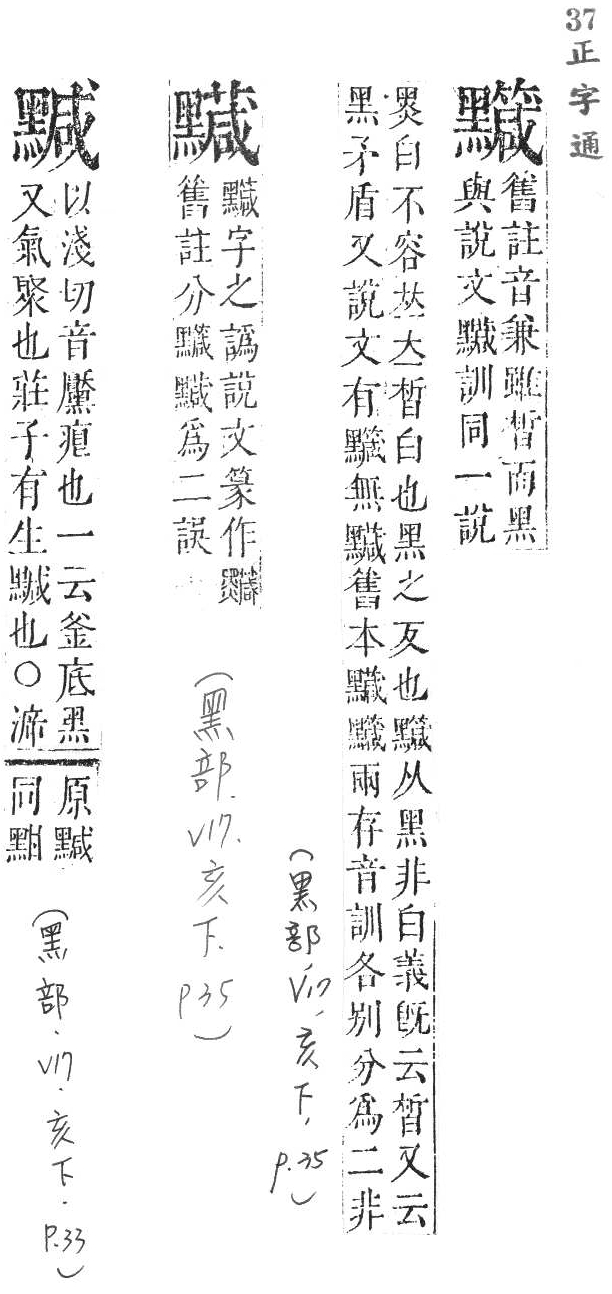 37
正字通
𪒹
舊註音兼雖晳而黑
與說文𪒹訓同一說
黑白不容竝立晳白也黑之反也𪒹从黑非白義既云晳又云
黑矛盾又說文有𪒹無黬舊本兩存音訓各別分為二非
(黑部, V17, 亥下, P.35)
字之譌說文篆作
舊註分為二誤
(黑部. V17. 亥下. P35)
黬
以淺切音黶疤也一云釜底黑
又氣聚也莊子有生黬也○渧
原黬
同
(黑部. V17. 亥下. P.33)